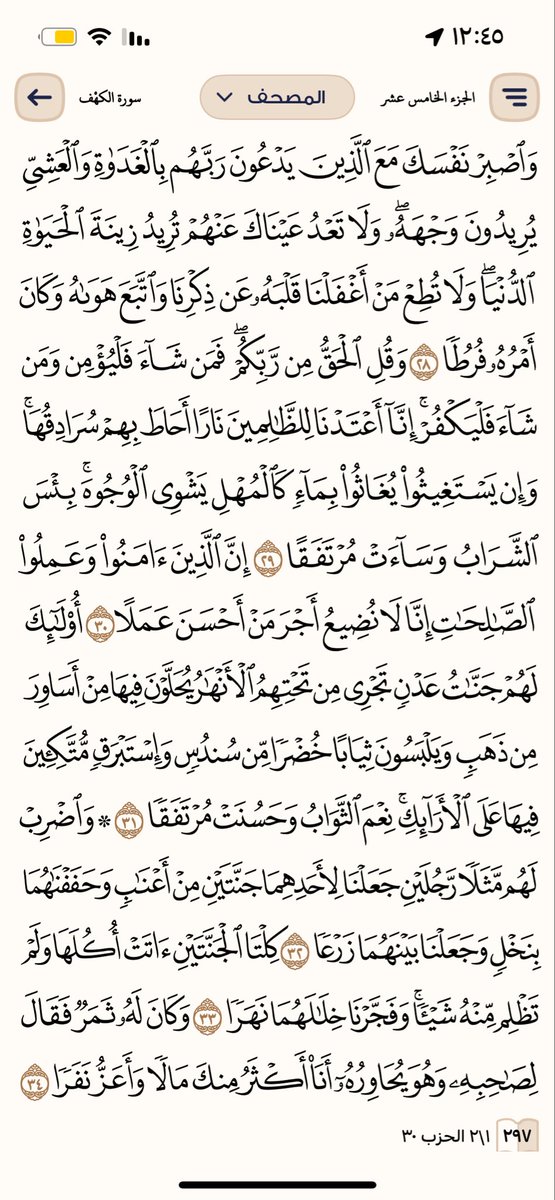 ١٢:٤٥
الجزء الخامس عشر
المصحف
سورة الكهف
وَٱصۡبِرۡ نَفۡسَكَ مَعَ ٱلَّذِينَ يَدۡعُونَ رَبَّهُم بِٱلۡغَدَوٰةِ وَٱلۡعَشِيِّ
يُرِيدُونَ وَجۡهَهُۥۖ وَلَا تَعۡدُ عَيۡنَاكَ عَنۡهُمۡ تُرِيدُ زِينَةَ ٱلۡحَيَوٰةِ
ٱلدُّنۡيَاۖ وَلَا تُطِعۡ مَنۡ أَغۡفَلۡنَا قَلۡبَهُۥ عَن ذِكۡرِنَا وَٱتَّبَعَ هَوَىٰهُ وَكَانَ
أَمۡرُهُۥ فُرُطٗا ٢٨ وَقُلِ ٱلۡحَقُّ مِن رَّبِّكُمۡۖ فَمَن شَآءَ فَلۡيُؤۡمِن وَمَن
شَآءَ فَلۡيَكۡفُرۡۚ إِنَّآ أَعۡتَدۡنَا لِلظَّٰلِمِينَ نَارًا أَحَاطَ بِهِمۡ سُرَادِقُهَاۚ
وَإِن يَسۡتَغِيثُواْ يُغَاثُواْ بِمَآءٖ كَٱلۡمُهۡلِ يَشۡوِي ٱلۡوُجُوهَۚ بِئۡسَ
ٱلشَّرَابُ وَسَآءَتۡ مُرۡتَفَقًا ٢٩ إِنَّ ٱلَّذِينَ ءَامَنُواْ وَعَمِلُواْ
ٱلصَّٰلِحَٰتِ إِنَّا لَا نُضِيعُ أَجۡرَ مَنۡ أَحۡسَنَ عَمَلًا ٣٠ أُوْلَٰٓئِكَ
لَهُمۡ جَنَّٰتُ عَدۡنٖ تَجۡرِي مِن تَحۡتِهِمُ ٱلۡأَنۡهَٰرُ يُحَلَّوۡنَ فِيهَا مِنۡ أَسَاوِرَ
مِن ذَهَبٖ وَيَلۡبَسُونَ ثِيَابًا خُضۡرٗا مِّن سُندُسٖ وَإِسۡتَبۡرَقٖ مُّتَّكِـِٔينَ
فِيهَا عَلَى ٱلۡأَرَآئِكِۚ نِعۡمَ ٱلثَّوَابُ وَحَسُنَتۡ مُرۡتَفَقٗا ٣١ ۞ وَٱضۡرِبۡ
لَهُم مَّثَلٗا رَّجُلَيۡنِ جَعَلۡنَا لِأَحَدِهِمَا جَنَّتَيۡنِ مِنۡ أَعۡنَٰبٖ وَحَفَفۡنَٰهُمَا
بِنَخۡلٖ وَجَعَلۡنَا بَيۡنَهُمَا زَرۡعٗا ٣٢ كِلۡتَا ٱلۡجَنَّتَيۡنِ ءَاتَتۡ أُكُلَهَا وَلَمۡ
تَظۡلِم مِّنۡهُ شَيۡـٔٗاۚ وَفَجَّرۡنَا خِلَٰلَهُمَا نَهَرٗا ٣٣ وَكَانَ لَهُۥ ثَمَرٞ فَقَالَ
لِصَٰحِبِهِۦ وَهُوَ يُحَاوِرُهُۥٓ أَنَا۠ أَكۡثَرُ مِنكَ مَالٗا وَأَعَزُّ نَفَرٗا ٣٤
٢٩٧ ١\٢ الحزب ٣٠